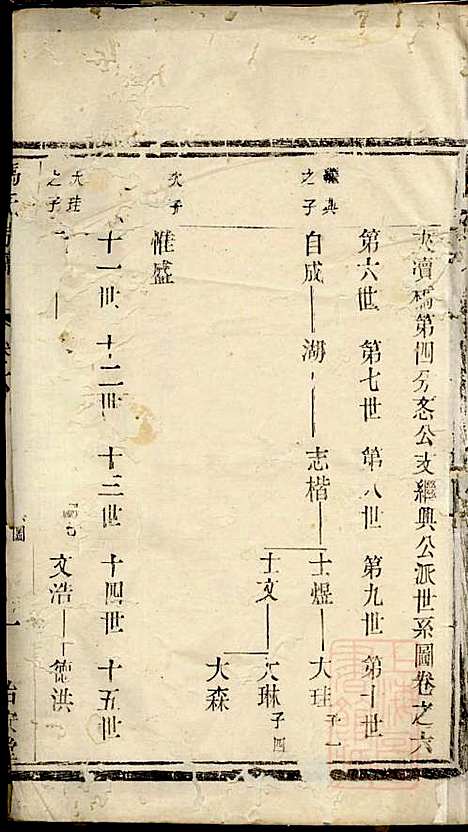 夾瀆橋第四分忞公支繼興公派世系圖卷之六
第六世 第七世 第八世 第九世 第十世
繼興之子 自成 湖 志楷 士煜 大珪 子一
士文 大琳 子四
大森
次子 惟盛
十一世 十二世 十三世 十四世 十五世
大珪之子 文浩 德洪
圖